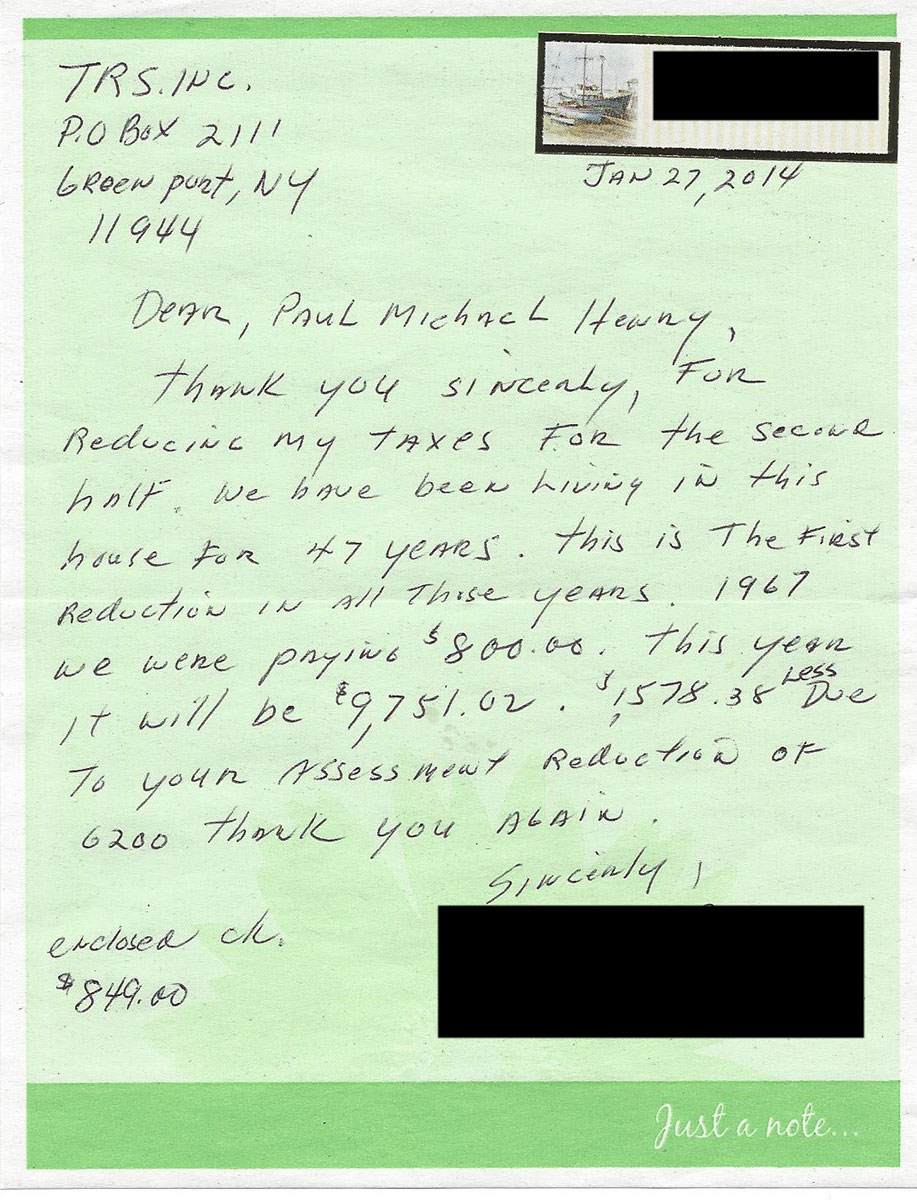 TRS. INC.
P.O Box 2111
Greenport, NY
11944
JAN 27, 2014
Dear, Paul Michael Henry,
thank you sincerly, For
Reducing my taxes For the second
half. We have been Living in this
house For 47 years. this is The First
Reduction in all Those years. 1967
we were paying $800.00. This year
it will be $9,751.02. $1,578.38 Less Due
To your Assessment Reduction of
6200 thank you Again.
Sincerly,
enclosed ck.
$849.00
Just a note...